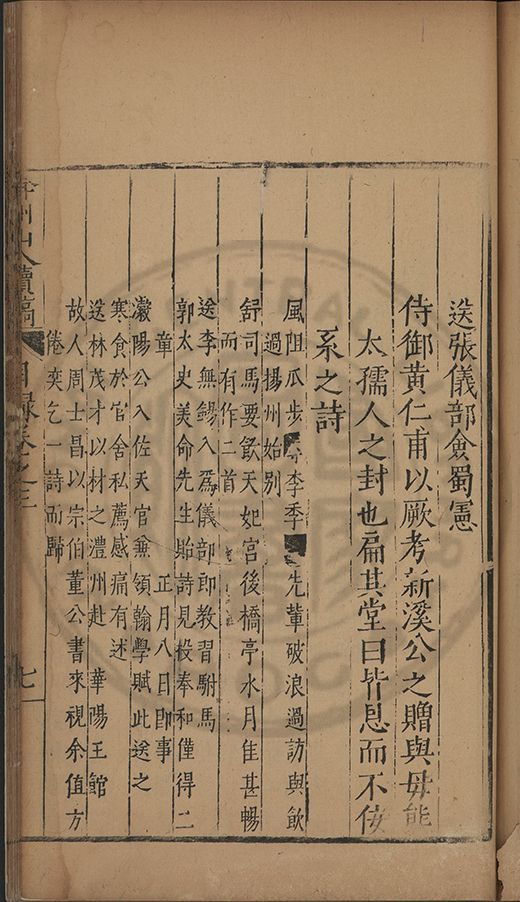 送張儀部僉蜀憲
侍御黃仁甫以厥考新溪公之贈與母熊
太孺人之封也扁其堂曰皆恩而不佞
系之詩
風阻瓜步李季先輩破浪過訪與飲
過揚州始別
舒司馬要飲天妃宮後橋亭水月隹甚暢
而有作二首
送李無鍚入爲儀部郎教習駙馬
郭太史美命先生貽詩見投奉和僅得二
章 正月八日即事
瀫陽公入佐天官兼領翰學賦此送之
寒食於官舍私薦感痛有述
送林茂才以材之澧州赴 華陽王館
故人周士昌以宗伯董公書來視余值方
倦奕乞一詩而歸
弇州山人續稿 目録卷之三
七